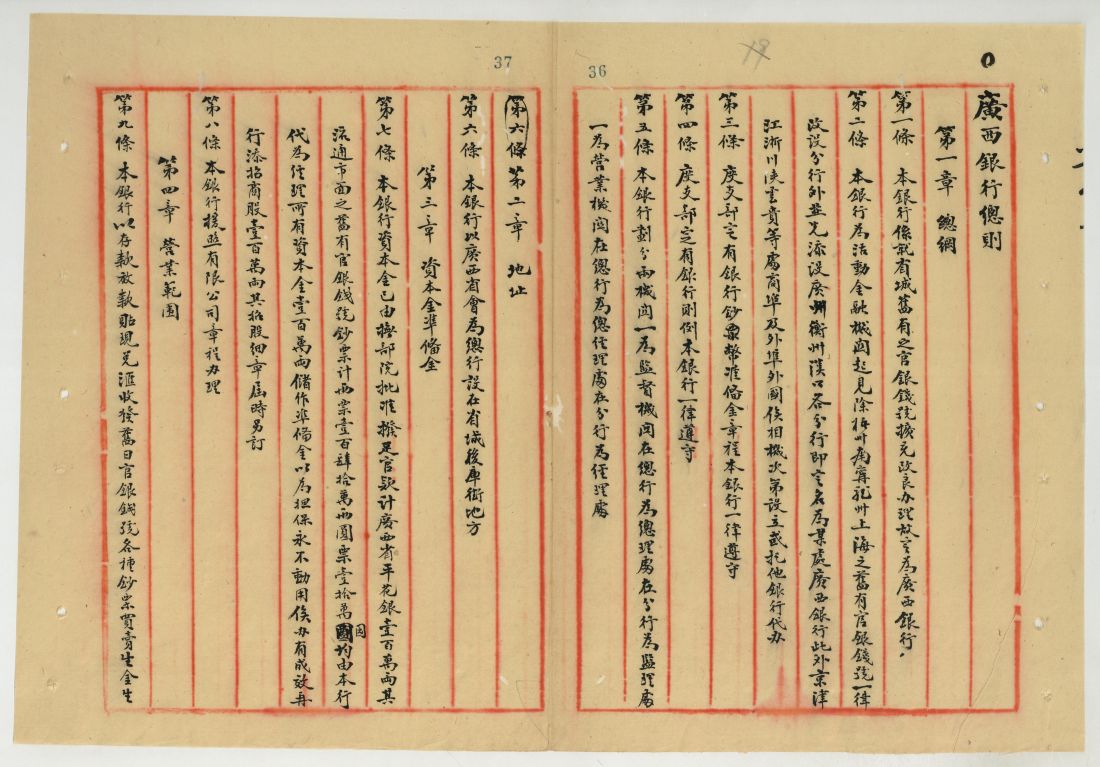 36
廣西銀行總則
第一章 總綱
第一條 本銀行係就省城舊有之官銀錢號擴充改良办理故定為廣西銀行
第二條 本銀行為活動金融機関起見除梧州南寧龍州上海之舊有官銀錢號一律
改設分行外並先添設廣州衡州漢口各分行即定名為某處廣西銀行此外京津
江浙川陝雲貴等處商埠及外埠外國俟相機次第設立或托他銀行代办
第三條 度支部定有銀行鈔票幣准俻金章程本銀行一律遵守
第四條 度支部定有銀行則例本銀行一律遵守
第五條 本銀行劃分兩機関一為監督機関在總行為總理處在分行為監理處
一為营業機関在總行為總经理處在分行為经理處
37
第六條 第二章 地址
第六條 本銀行以廣西省會為總行設在省城後庫街地方
第三章 資本金準俻金
第七條 本銀行資本金已由撫部院批准撥足官欵計廣西省平花銀壹百萬両其
流通市面之舊有官銀錢號鈔票計両票壹百肆拾萬両圓票壹拾萬圎均由本行
代為经理所有資本金壹百萬両儲作準俻金以為担保永不動用俟办有成效再
行添招商股壹百萬両其招股细章屆時另訂
第八條 本銀行援照有限公司章程办理
第四章 營業範圍
第九條 本銀行以存款放款貼現兑滙收發舊日官銀錢號各種鈔票買賣生金生